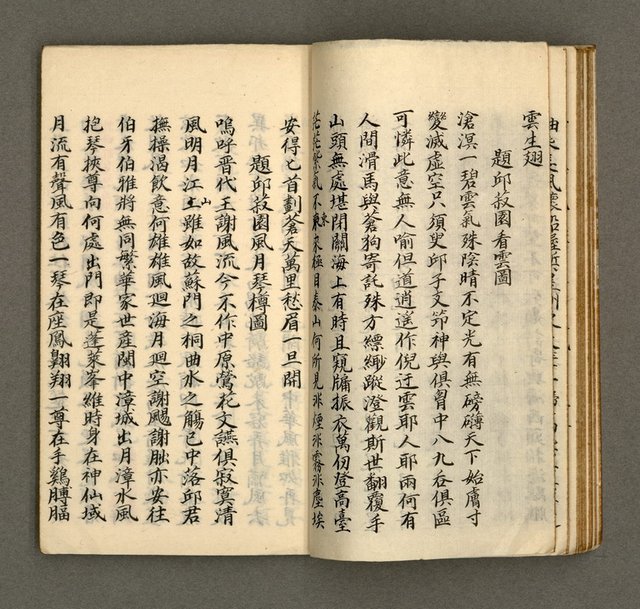 雲生翅
題邱叔園看雲圖
滄溟一碧雲氣殊陰晴不定光有無磅礴天下始膚寸
變滅虛空只須臾邱子文節神與俱胃中八九吞俱區
可憐此意無人喻但道逍遙作倪迂雲耶人耶兩何有
人間滑馬與蒼狗寄託殊方縹緲蹤澄觀斯世翻覆手
山頭無處堪閉關海上有時且窺牖振衣萬仞登高臺
茫茫紫氣不東來極目泰山何所見非煙非霧非塵埃
安得匕首劃蒼天萬里愁眉一旦開
題邱叔園風月琴樽圖
嗚呼晉代王謝風流今不作中原鶯花文讌俱寂寞清
風明月江山雖如故蘇門之桐曲水之觴已中落邱君
撫操渴飲意何雄雄風迴海月迴空謝颺謝朏亦安往
伯牙伯雅將無同繁華家世產閩中漳城出月漳水風
抱琴挾尊向何處出門即是蓬萊峯雖時身在神仙域
月流有聲風有色一琴在座鳳翱翔一尊在手鷄膊腷